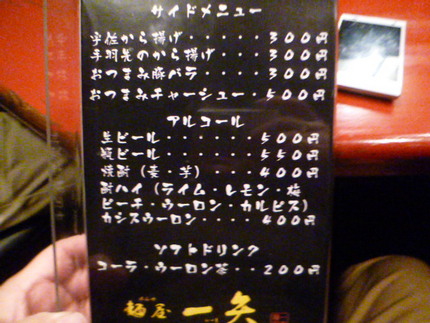 サイドメニュー
宇佐から揚げ・・・・・300円
手羽先のから揚げ・・・300円
おつまみ豚バラ・・・・300円
おつまみチャーシュー・500円
アルコール
生ビール・・・・・・・500円
瓶ビール・・・・・・・550円
焼酎(麦・芋)・・・・400円
酎ハイ(ライム・レモン・梅
ピーチ・ウーロン・カルピス)
カシスウーロン・・・・400円
ソフトドリンク
コーラ・ウーロン茶・・200円
麺屋一矢